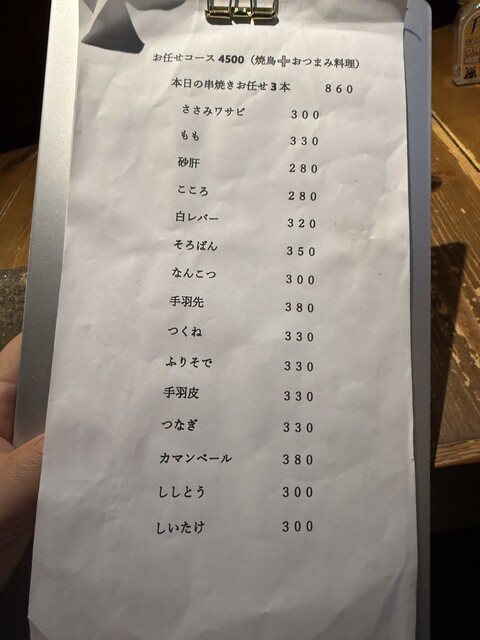 お任せコース 4500（焼鳥➕おつまみ料理）
本日の串焼きお任せ3本 860
ささみワサビ 300
もも 330
砂肝 280
こころ 280
白レバー 320
そろばん 350
なんこつ 300
手羽先 380
つくね 330
ふりそで 330
手羽皮 330
つなぎ 330
カマンベール 380
ししとう 300
しいたけ 300